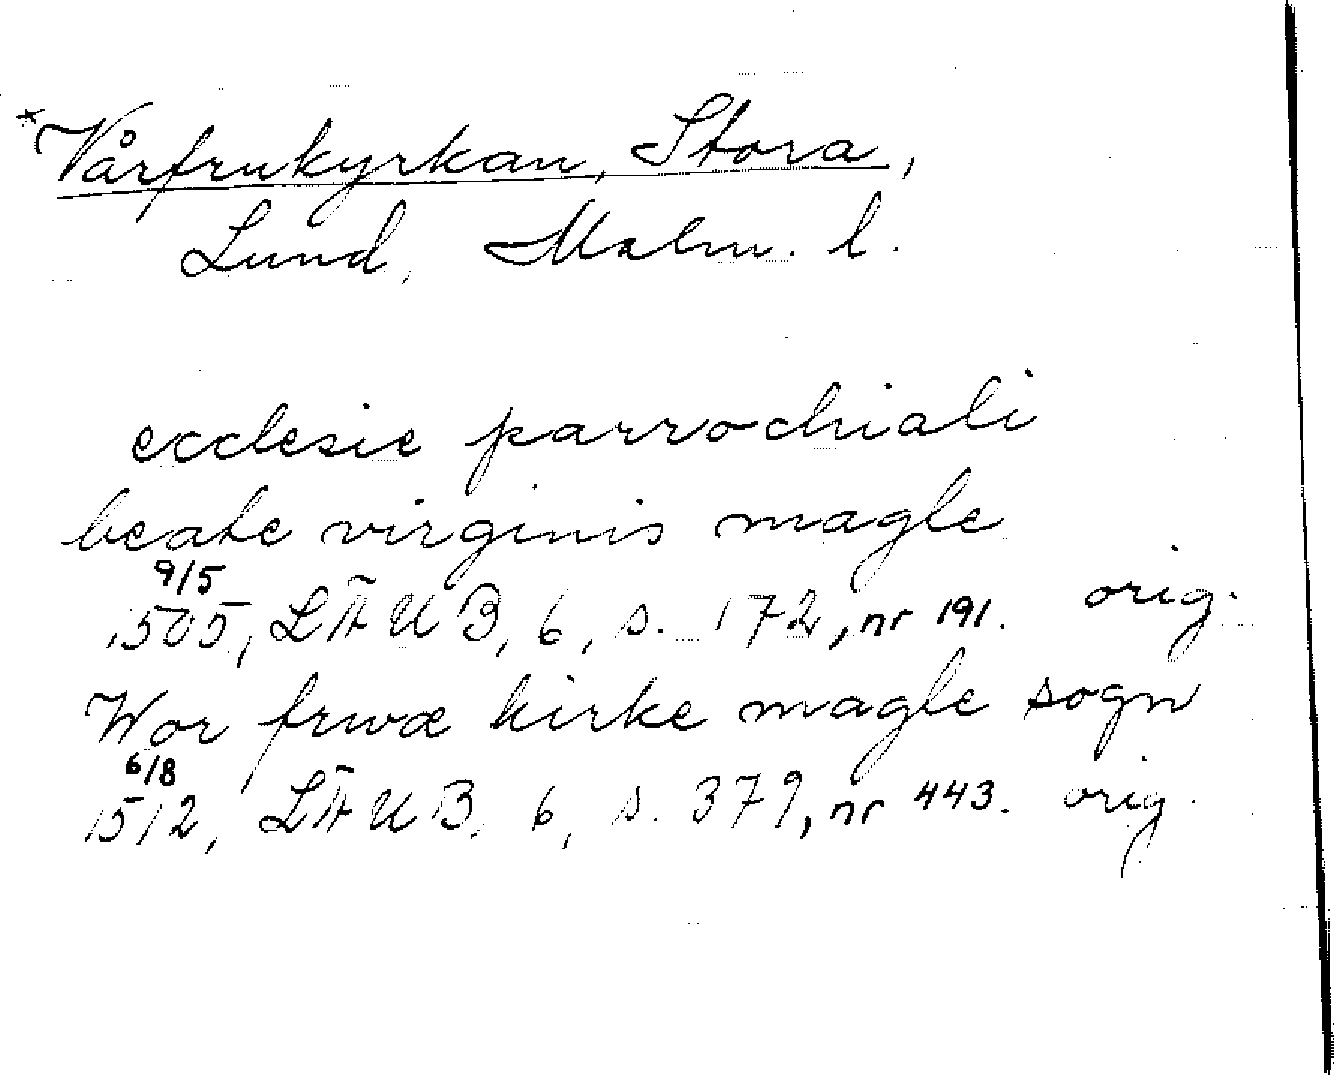 *Vårfrukyrkan, Stora,
Lund, Malm. l.
ecclesie parrochiali
beate virginis magle
9/5
1505, LÄUB, 6, s. 172, nr 191. orig.
Wor frwæ kirke magle sogn
6/8
1512, LÄUB, 6, s. 379, nr 443. orig.